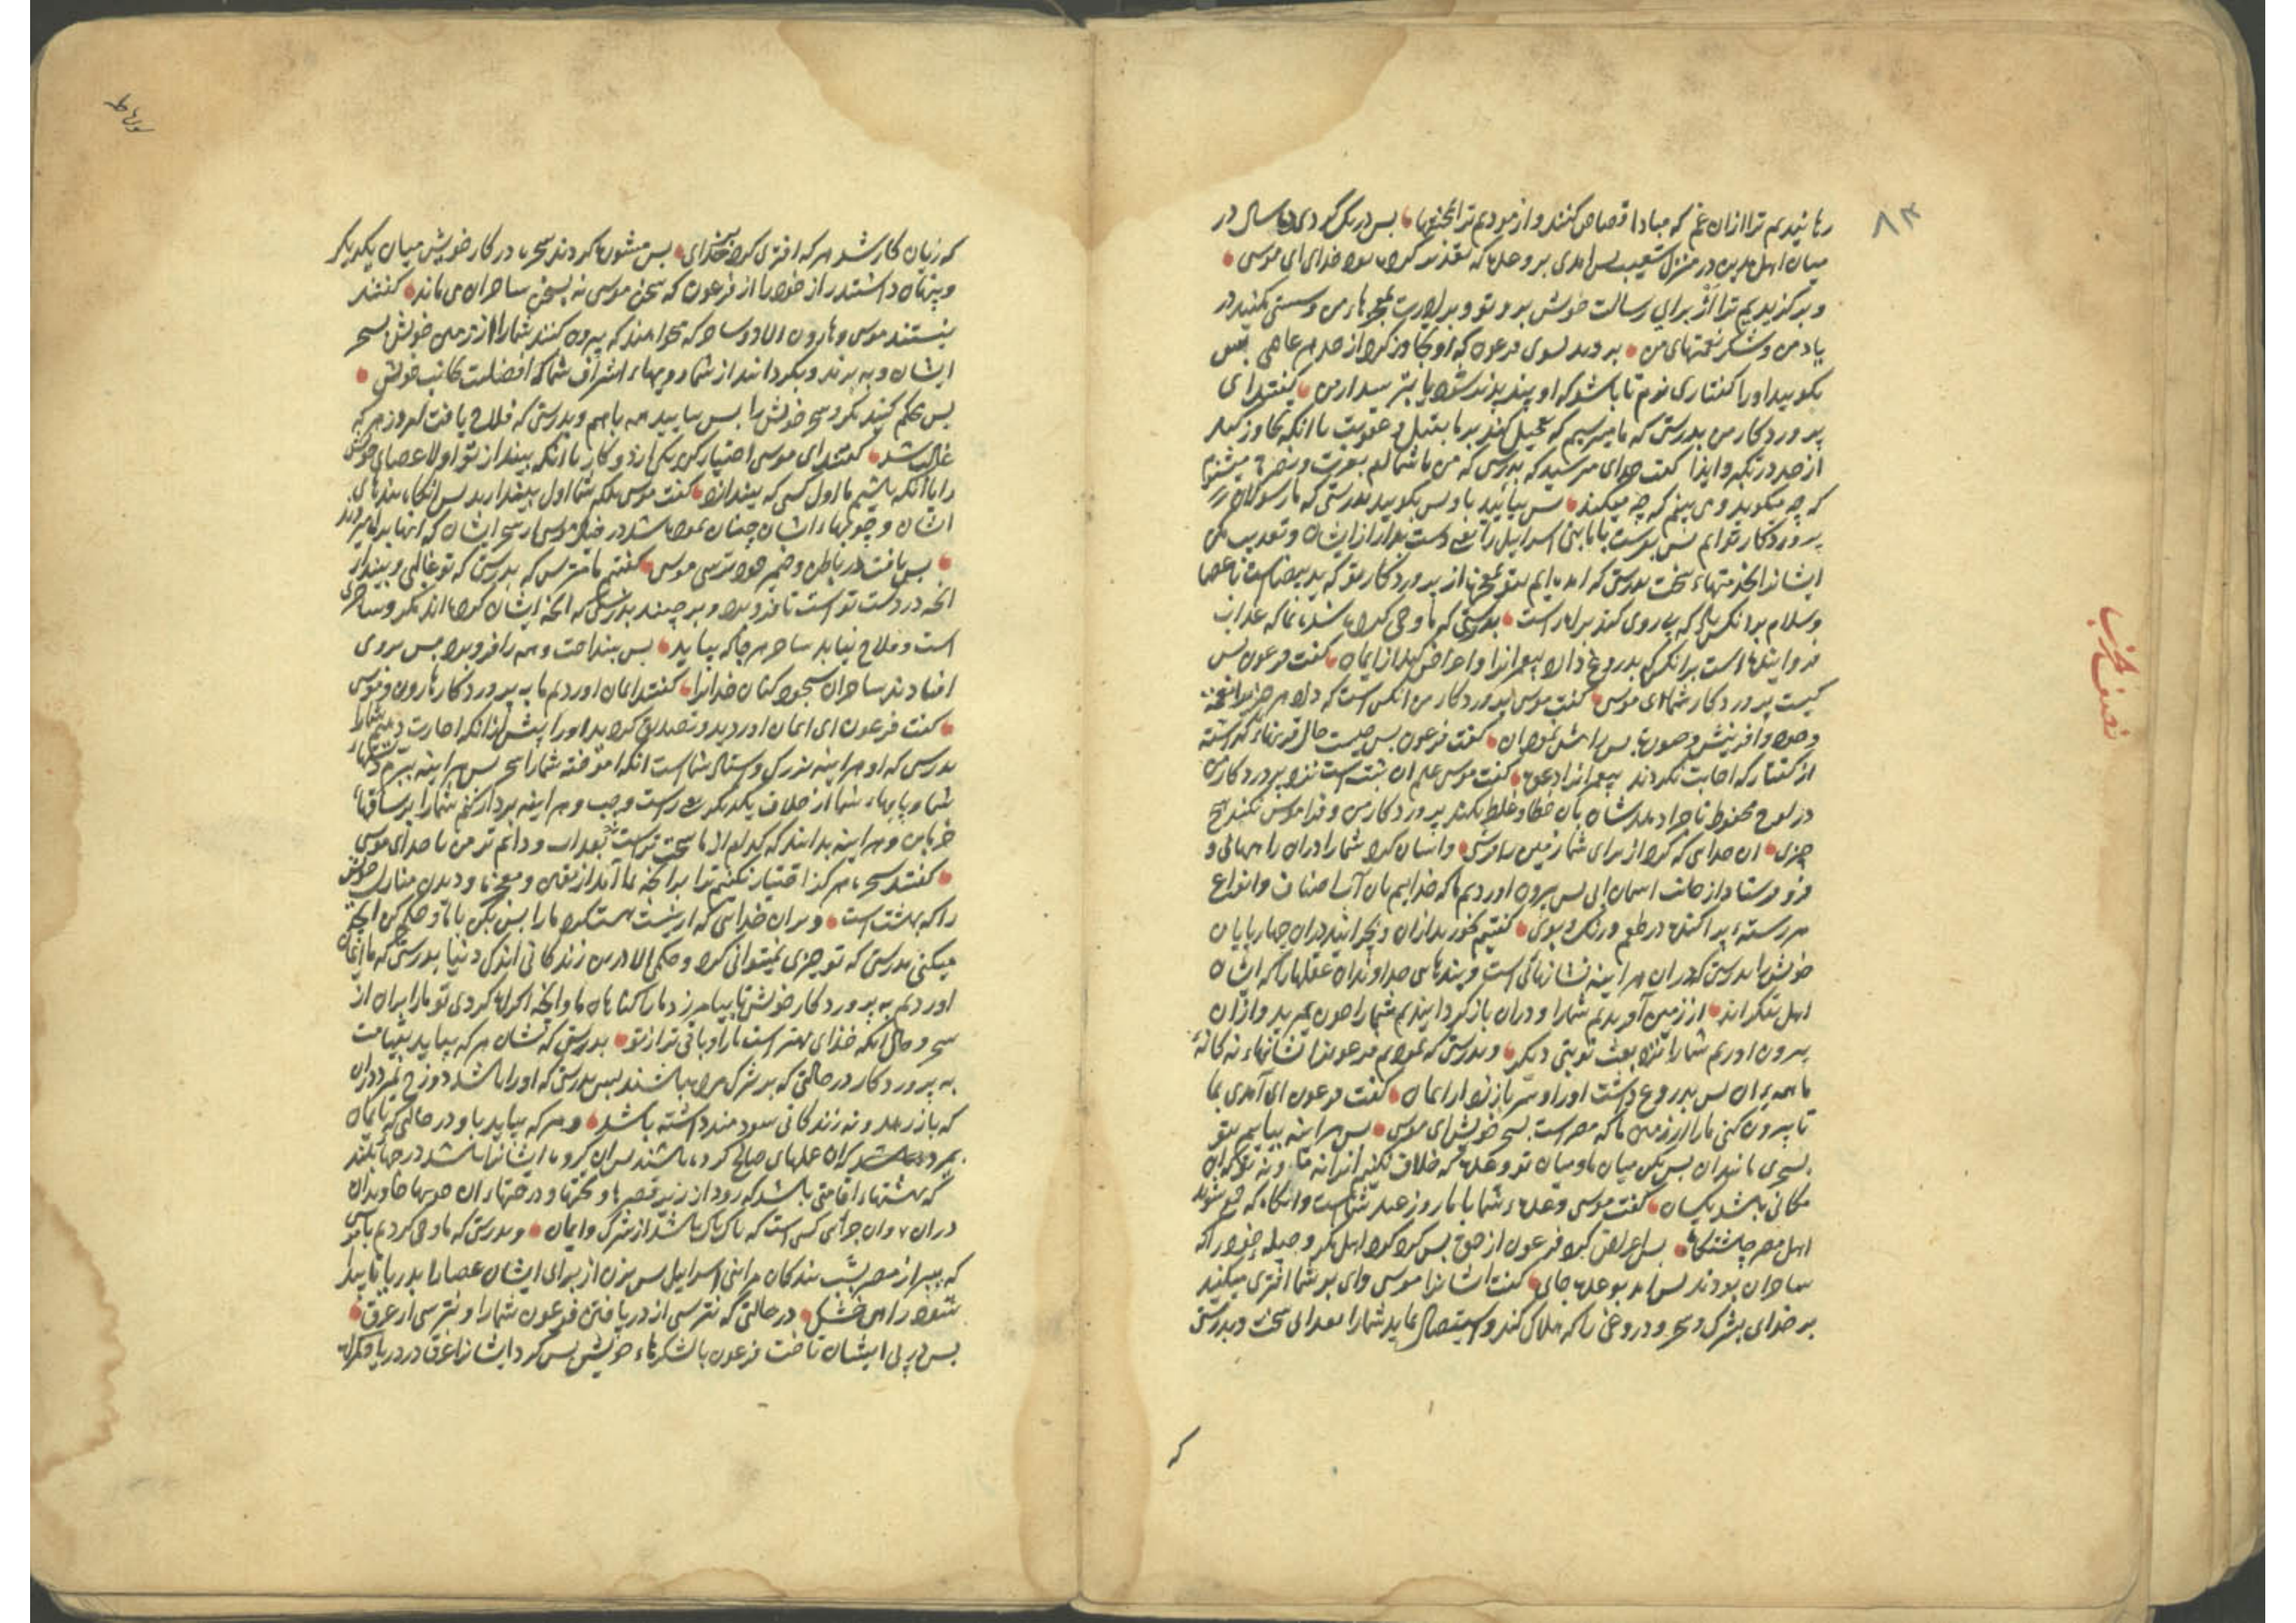 ۸۳
رهانیدیم ترا ازان غم که مبادا قصاص کنند و ازمودیم ترا بمحنتها پس درنگ کردی سال در
میان اهل مدین در منزل شعیب پس امدی بر وعده که تقدیر کرده بود خدای ای موسی
و برکزیدیم ترا از برای رسالت خویش برو تو و برادرت بمعجزهاء من و سستی مکنید در
یاد من و شکر نعمتهای من بروید بسوی فرعون که او تجاوز کرد از حد پس
بکویید او را کفتاری نرم تا باشد که او پند پذیر شود یا بترسد از من کفتند ای
پروردکار من بدرستی که ما میترسیم که تعجیل کند بر ما بقتل و عقوبت یا انکه تجاوز کند
از حد در تکبر و ایذا کفت خدای مترسید که بدرستی که من با شماام بعزت و نصرت میشنوم
که چه میکوید و می بینم که چه میکند پس بیایید باو پس بکویید بدرستی که ما رسولان
پروردکار توایم پس بفرست با ما بنی اسراییل را یعنی دست بدار از ایشان و تعذیب مکن
ایشانرا بخدمتهاء سخت بدرستی که امده ایم بتو بمعجزها از پروردکار تو که ید بیضاست یا عصا
و سلام بر انکس باد که پی روی کند براه راست بدرستی که ما وحی کرده شده ایم که عذاب
فرو اینده است بر انکس که بدروغ دارد پیغمبرانرا و اعراض کند از ایمان کفت فرعون پس
کیست پروردکار شما ای موسی کفت موسی پروردکار من انکس است که داد هر چیز را
از کفتار که اجابت نکردند پیغمبرانرا کفت موسی علم ان ثبت است نزد پروردکار من
در لوح محفوظ تا جزا دهد شان بان خطا و غلط نکند پروردکار من و فراموش نکند هیچ
چیزی ان خدایی که کرد از برای شما زمین را فرشی و اسان کرد شما را دران راهها و
فرو فرستاد از جانب اسمان ابی پس بیرون اوردیم ما که خداییم بان آب اصناف و انواع
هر رسته پراکنده در طعم و رنک و بوی کفتیم بخورید ازان و بچرانید دران چهارپایان
خویش را بدرستی که دران هر اینه نشانهایی است و پندهایی خداوندان عقلها را که ایشان
اهل تفکراند از زمین آفریدیم شما را و دران باز کردانیدیم شما را چون بمیرید و ازان
بیرون اوریم شما را نزد بعث نوبتی دیکر و بدرستی که نمودیم فرعونرا نشانهاء یکانه
ما همه بران پس بدروغ داشت او را و سر باز زد از ایمان کفت فرعون ای آمدی بما
تا بیرون کنی ما را از زمین ما که مصر است بسحر خویش ای موسی پس هر اینه بیاییم بتو
بسحری مانند ان پس بکن میان ما و میان تو وعده که خلاف نکنیم انرا نه ما و نه تو دران
مکانی باشد یکسان کفت موسی وعده شما با ما روز عید شماست و انکاه که جمع شوند
اهل مصر چاشتکاه پس اعراض کرد فرعون از حق پس کرد کرد اهل مکر و حیله خود را که
ساحران بودند پس امد بوعده جای کفت ایشانرا موسی وای بر شما افتری میکنید
بر خدای بشرک و سحر و دروغی را که هلاک کند و استیصال نماید شما را بعذابی سخت و بدرستی
که
نصف حزب
که زیان کار شد هر که افتری کرد بر خدای پس مشورت کردند سحره در کار خویش میان یکدیکر
و پنهان داشتند راز خود را از فرعون که سخن موسی نه بسخن ساحران می ماند کفتند
نیستند موسی و هارون الا دو ساحر که میخواهند که بیرون کنند شما را از زمین خویش بسحر
ایشان و به برند و بکردانند از شما رویهاء اشراف شما که افضلست بجانب خویش
پس محکم کنید مکر و سحر خویش را پس بیایید همه باهم و بدرستی که فلاح یافت امروز هر که
غالب شد کفتند ای موسی اختیار کن یکی از دو کار یا انکه بیندازی تو اولا عصای خویش
را یا انکه باشیم ما اول کسی که بیندازد کفت موسی بلکه شما اول بیندازید پس انکاه بندهای
ایشان و چوبهاء ایشان چنان نموده شد در خیال موسی از سحر ایشان که انها براه میروند
پس یافت در باطن و ضمیر خود ترسی موسی کفتیم ما مترس که بدرستی که تو غالبی و بینداز
انچه در دست تو است تا فرو برد و بر چیند بدرستی که انچه ایشان کرده اند مکر و ساحری
است و فلاح نیابد ساحر هر جا که بیاید پس بینداخت و همه را فرو برد پس بروی
افتادند ساحران سجود کنان خدا را کفتند ایمان اوردیم ما به پروردکار هارون و موسی
کفت فرعون ای ایمان اوردید و تصدیق کردید او را پیش از انکه اجازت دهم شما را
بدرستی که او هر اینه بزرک و استاد شماست انکه آموخته شما را سحر پس هر اینه ببرم دستهاء
شما و پایهاء شما از خلاف یکدیکر یعنی راست و چپ و هر اینه بردار کنم شما را بر ساقهاء
خرمابن و هر اینه بدانند که کدام از ما سخت ترست بعذاب و دایم تر من یا خدای موسی
کفتند سحره هرکز اختیار نکنیم ترا بر انچه بما آمد از یقین و معجزه و دیدن منازل خویش
را که بهشت است و بران خدایی که از نیست هست کرد ما را پس بکن با ما و حکم کن انچه
میکنی بدرستی که تو چیزی نمیتوانی کرد و حکمی الا درین زندکانی اندک دنیا بدرستی که ما ایمان
اوردیم به پروردکار خویش تا بیامرزد ما را کناهان ما و انچه اکراه کردی تو ما را بران از
سحر و حال انکه خدای بهتر است ما را و باقی تر از تو بدرستی که شان هر که بیاید بقیامت
به پروردکار در حالتی که بر شرک مرده باشند پس بدرستی که او را باشد دوزخ نمیرد دران
که باز رهد و نه زندکانی سودمند داشته باشد و هر که بیاید باو در حالتی که بایمان
بمیرد کران عملهای صالح کرده باشند پس ان کروه ایشانرا باشد درجهاء بلند
که بهشتهاء اقامتی باشد که رود از زیر قصرها و تختها و درختهاء ان جویها جاویدان
دران و ان جزای کسی است که پاک باشد از شرک و ایمان و بدرستی که ما وحی کردیم بموسی
که ببر از مصر بشب بندکان مرا بنی اسراییل پس بزن از برای ایشان عصا را بدریا تا پیدا
شود راهی خشک در حالتی که نترسی از دریافتن فرعون شما را و نترسی از غرق
پس در پی ایشان تاخت فرعون با لشکرهاء خویش پس کرد ایشانرا غرق در دریا